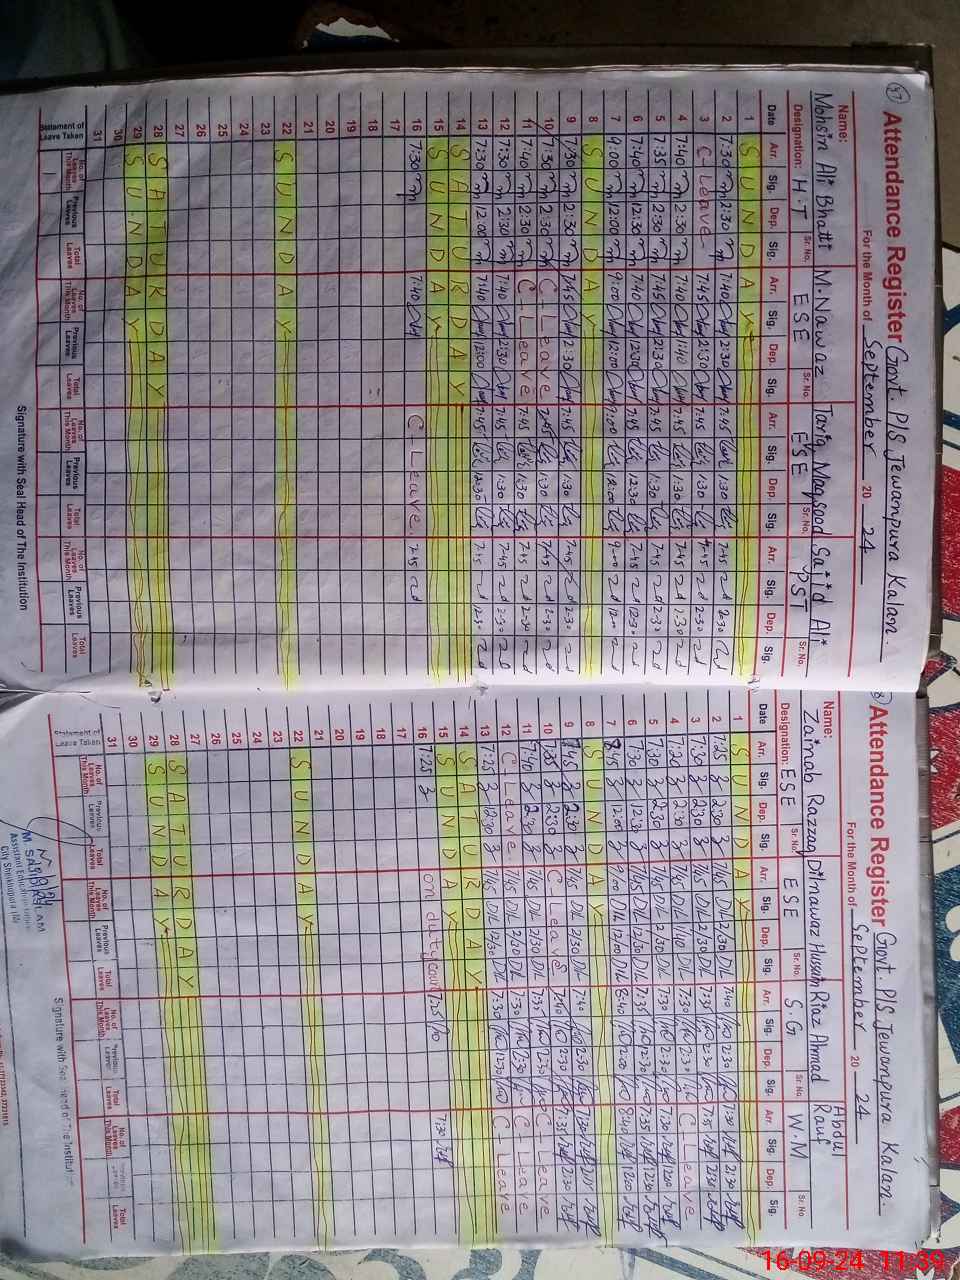 47
Attendance Register Govt. P/S Jewanpura Kalan.
For the Month of September 20 24
Name: Mohsin Ali Bhatti M.Nawaz Tariq Maqsood Sajid Ali
Designation: H.T Sr. No. ESE Sr. No. ESE Sr. No. PST Sr. No.
Date Arr. Sig. Dep. Sig. Arr. Sig. Dep. Sig. Arr. Sig. Dep. Sig. Arr. Sig. Dep. Sig.
1 SUNDAY
2 7:30 2:30 7:40 2:30 7:45 1:30 7:45 2:30
3 C-Leave 7:45 2:30 7:45 1:30 7:45 2:30
4 7:40 2:30 7:40 1:40 7:45 1:30 7:45 2:30
5 7:35 2:30 7:45 2:30 7:45 1:30 7:45 2:30
6 7:40 12:30 7:40 12:30 7:45 12:30 7:45 12:30
7 9:00 12:00 9:00 12:00 9:00 12:00 9:00 12:00
8 SUNDAY
9 7:30 2:30 7:45 2:30 7:45 1:30 7:45 2:30
10 7:30 2:30 C-Leave 7:45 1:30 7:45 2:30
11 7:40 2:30 C-Leave 7:45 1:30 7:45 2:30
12 7:30 2:30 7:40 2:30 7:45 1:30 7:45 2:30
13 7:30 12:00 7:40 12:00 7:45 12:30 7:45 12:30
14 SATURDAY
15 SUNDAY
16 7:30 7:40 C-Leave 7:45
17
18
19
20
21
22 SUNDAY
23
24
25
26
27
28 SATURDAY
29 SUNDAY
30
31
Statement of Leave Taken
No. of Leaves This Month Previous Leaves Total Leaves No. of Leaves This Month Previous Leaves Total Leaves No. of Leaves This Month Previous Leaves Total Leaves No. of Leaves This Month Previous Leaves Total Leaves
Signature with Seal Head of The Institution
Attendance Register Govt. P/S Jewanpura Kalan.
For the Month of September 20 24
Name: Zainab Razzaq Dilnawaz Hussain Riaz Ahmad Abdul Rauf
Designation: ESE Sr. No. ESE Sr. No. S.G Sr. No. W.M Sr. No
Date Arr. Sig. Dep. Sig. Arr. Sig. Dep. Sig. Arr. Sig. Dep. Sig. Arr. Sig. Dep. Sig.
1 SUNDAY
2 7:25 2:30 7/45 DIL 2/30 DIL 7:40 2:30 7:30 2:30
3 7:30 2:30 7/45 DIL 2/30 DIL 7:35 2:30 7:35 2:30
4 7:20 2:30 7/45 DIL 1/10 DIL 7:30 2:30 C-Leave
5 7:30 2:30 7/45 DIL 2/30 DIL 7:30 2:30 7:30
6 7:30 12:30 7/45 DIL 12/30 DIL 7:35 12:30 7:35 12:30
7 8:45 12:00 9:00 DIL 12/00 DIL 8:40 12:00 8:40 12:00
8 SUNDAY
9 2:30 7/45 DIL 2/30 DIL 7:40 2:30 7:30
10 2:30 C Leave 7:40 2:30 7:35 2:30
11 7:40 2:30 7/45 DIL 2/30 DIL 7:35 2:30 C-Leave
12 C-Leave 7/45 DIL 2/30 DIL 7:30 2:30 C-Leave
13 7:25 12:30 7/45 DIL 12/30 DIL 7:30 12:30 C-Leave
14 SATURDAY
15 SUNDAY
16 7:25 on duty 7:25 7:30
17
18
19
20
21
22 SUNDAY
23
24
25
26
27
28 SATURDAY
29 SUNDAY
30
31
Statement of Leave Taken
No. of Leaves This Month Previous Leaves Total Leaves No. of Leaves This Month Previous Leaves Total Leaves No. of Leaves This Month Previous Leaves Total Leaves No. of Leaves This Month Previous Leaves Total Leaves
Assistant Education
City Sheikhupura
Signature with Seal Head of The Institution
16-09-24 11:39